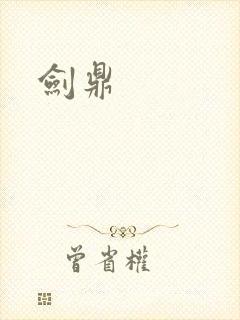 劍鼎
曾省權